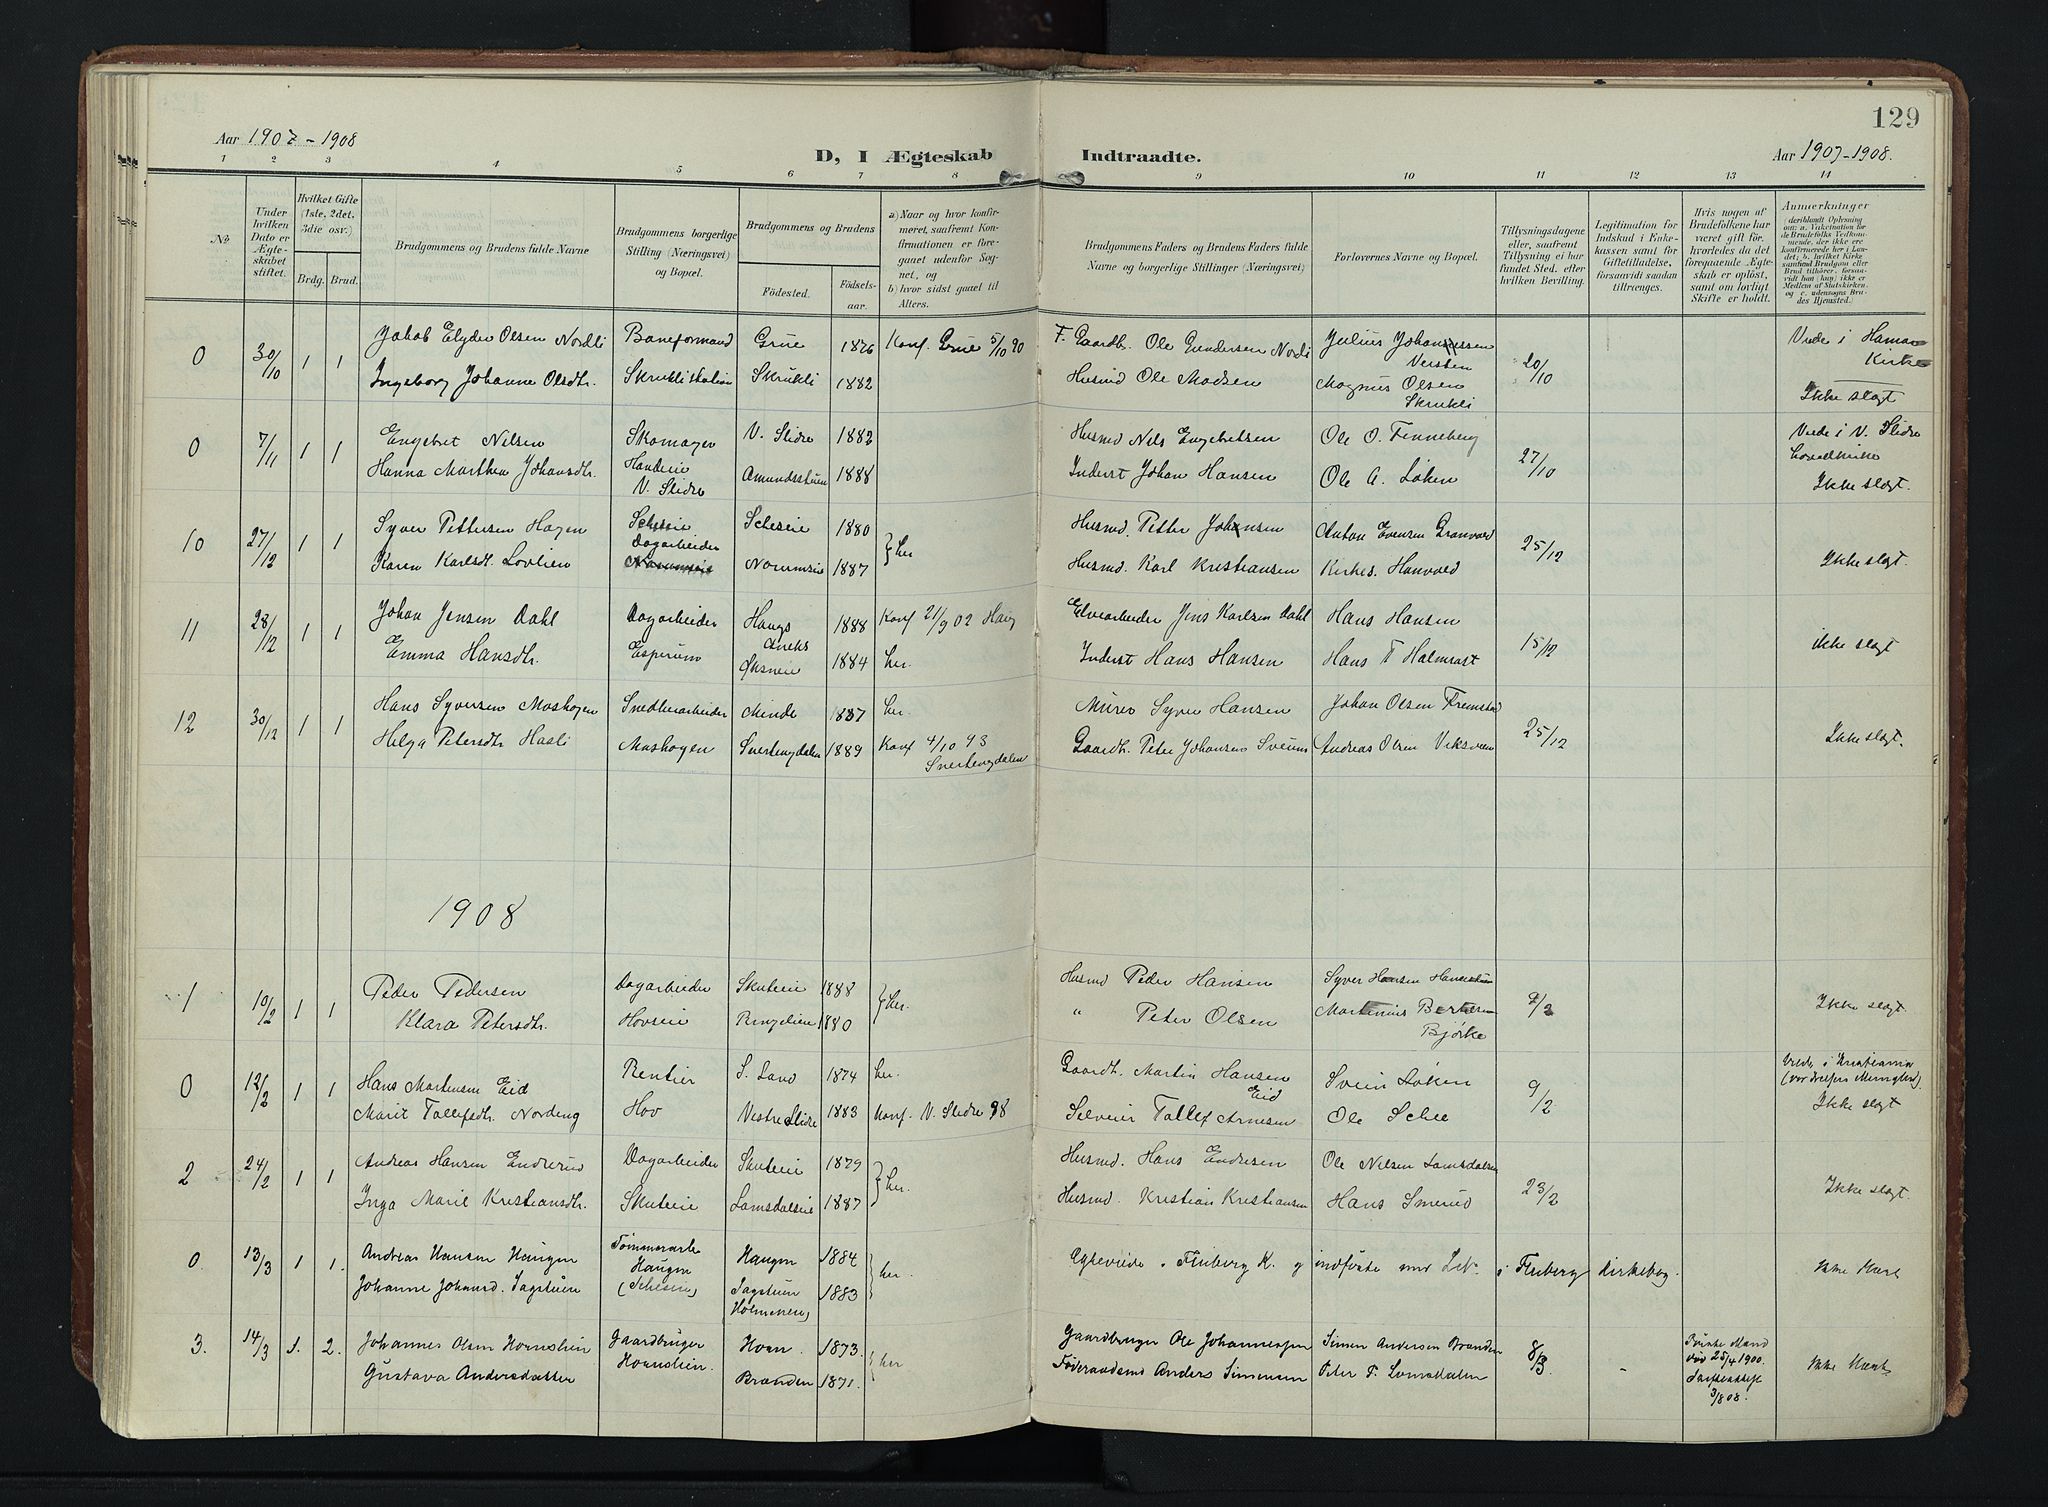 129
Aar 1907 - 1908
D, I Ægteskab Indtraadte.
Aar 1907-1908.
1 2 3 4 5 6 7 8 9 10 11 12 13 14
No
Under hvilken Dato er Ægteskabet stiftet.
Hvilket Gifte (1ste, 2det, 3die osv.)
Brdg. Brud.
Brudgommens og Brudens fulde Navne
Brudgommens borgerlige Stilling (Næringsvei) og Bopæl.
Brudgommens og Brudens
Fødested. Fødselsaar.
a) Naar og hvor konfirmeret, saafremt Konfirmationen er foregaaet udenfor Sognet, og
b) hvor sidst gaaet til Alters.
Brudgommens Faders og Brudens Faders fulde Navne og borgerlige Stillinger (Næringsvei)
Forlovernes Navne og Bopæl.
Tillysningsdagene eller, saafremt Tillysning ei har fundet Sted, efter hvilken Bevilling.
Legitimation for Indskud i Enkekassen samt for Giftetilladelse, forsaavidt saadan tiltrænges.
Hvis nogen af Brudefolkene har været gift før, hvorledes da det foregaaende Ægteskab er opløst, samt om lovligt Skifte er holdt.
Anmerkninger (deriblandt Oplysning om: a. Vakcination for de Brudefolks Vedkommende, der ikke ere konfirmerede her i Landet; b. hvilket Kirkesamfund Brudgom eller Brud tilhører, forsaavidt han (hun) ikke er Medlem af Statskirken, og c. udensogns Brudes Hjemsted.)
0 30/10 1 1 Jakob Olsen Nordli Baneformand Grue 1876 Konf. Grue 5/10 90 F. Gaardb. Ole Gundersen Nordli Julius Johannessen Versten 20/10 Viede i Hamar Kirke
Ingeborg Johanne Olsdtr. Skruklistation Skrukli 1882 Husmd Ole Madsen Magnus Olsen Skrukli Ikke slægt
0 7/11 1 1 Engebret Nilsen Skomager V. Slidre 1882 Husmd Nils Engebretsen Ole O. Finneberg 27/10 Viede i V. Slidre hovedkirke
Hanna Marthea Johansdtr. V. Slidre Amundsstuen 1888 Inderst Johan Hansen Ole A. Løken Ikke slægt.
10 27/12 1 1 Syver Pettersen Hagen Scheseie Dagarbeider Scheseie 1880 } her Husmd. Petter Johansen Anton Evensen Granvold 25/12 Ikke slægt.
Karen Karlsdt. Lovlien Nommseie 1887 Husmd. Karl Kristiansen Kirkes. Hanvold
11 28/12 1 1 Johan Jensen Dahl Dagarbeider Haugs Aneks 1888 Konf 21/9 02 Haug Elvearbeider Jens Karlsen Dahl Hans Hansen 15/12 ikke slægt
Emma Hansdtr. Esperum 1884 her. Inderst Hans Hansen Hans T Halmrast
12 30/12 1 1 Hans Syversen Moshagen Snedkerarbeider Minde 1887 her. Murer Syver Hansen Johan Olsen Fremstad 25/12 Ikke slægt.
Helga Petersdtr Hasli Moshagen Snertingdalen 1889 Konf 4/10 93 Snertingdalen Gaardb. Peter Johansen Sveum Andreas Olsen Viksveen
1908
1 10/2 1 1 Peder Pedersen Dagarbeider Skuteeie 1888 } her. Husmd Peder Hansen Syver Hansen 9/2 Ikke slægt.
Klara Petersdtr. Hovseie Ringelien 1880 " Peter Olsen Martinius Bertesen Bjørke
0 12/2 1 1 Hans Martinsen Eid Rentier S. Land 1874 her. Gaardb. Martin Hansen Eid Svein Løken 9/2 Viede i Kristiania
Marit Tollefsdtr. Nordeng Hov Vestre Slidre 1883 Konf. V. Slidre 98 Selveier Tollef Arnesen Ole Schee Ikke slægt
2 24/2 1 1 Andreas Hansen Enderud Dagarbeider Skuteeie 1879 } her. Husmd. Hans Endresen Ole Nilsen Lomsdalen 23/2 Ikke slægt.
Inga Marie Kristiansdtr. Skuteeie Lomsdalseie 1887 Husmd. Kristian Kristiansen Hans Smerud
0. 13/3 1 1. Andreas Hansen Haugen Tømmerarb. Haugen (Scheseie) Haugen 1884 } her. Egteviede i Fluberg K. og indførte med i Fluberg Kirkebog. Ikke slægt
Johanne Johansd. Sagstuen Sagstuen 1883
3. 14/3 1. 2. Johannes Olsen Hornslien Gaardbruger Hornslien. Horn. 1873. } her Gaardbruger Ole Johannessen Simen Andersen Brænden 8/3 - Første Mand død 25/4 1900. 3/8 08. Ikke slægt
Gustava Andersdatter Brænden 1871. Føderaadsmd Anders Simensen Peter F. Lomsdalen